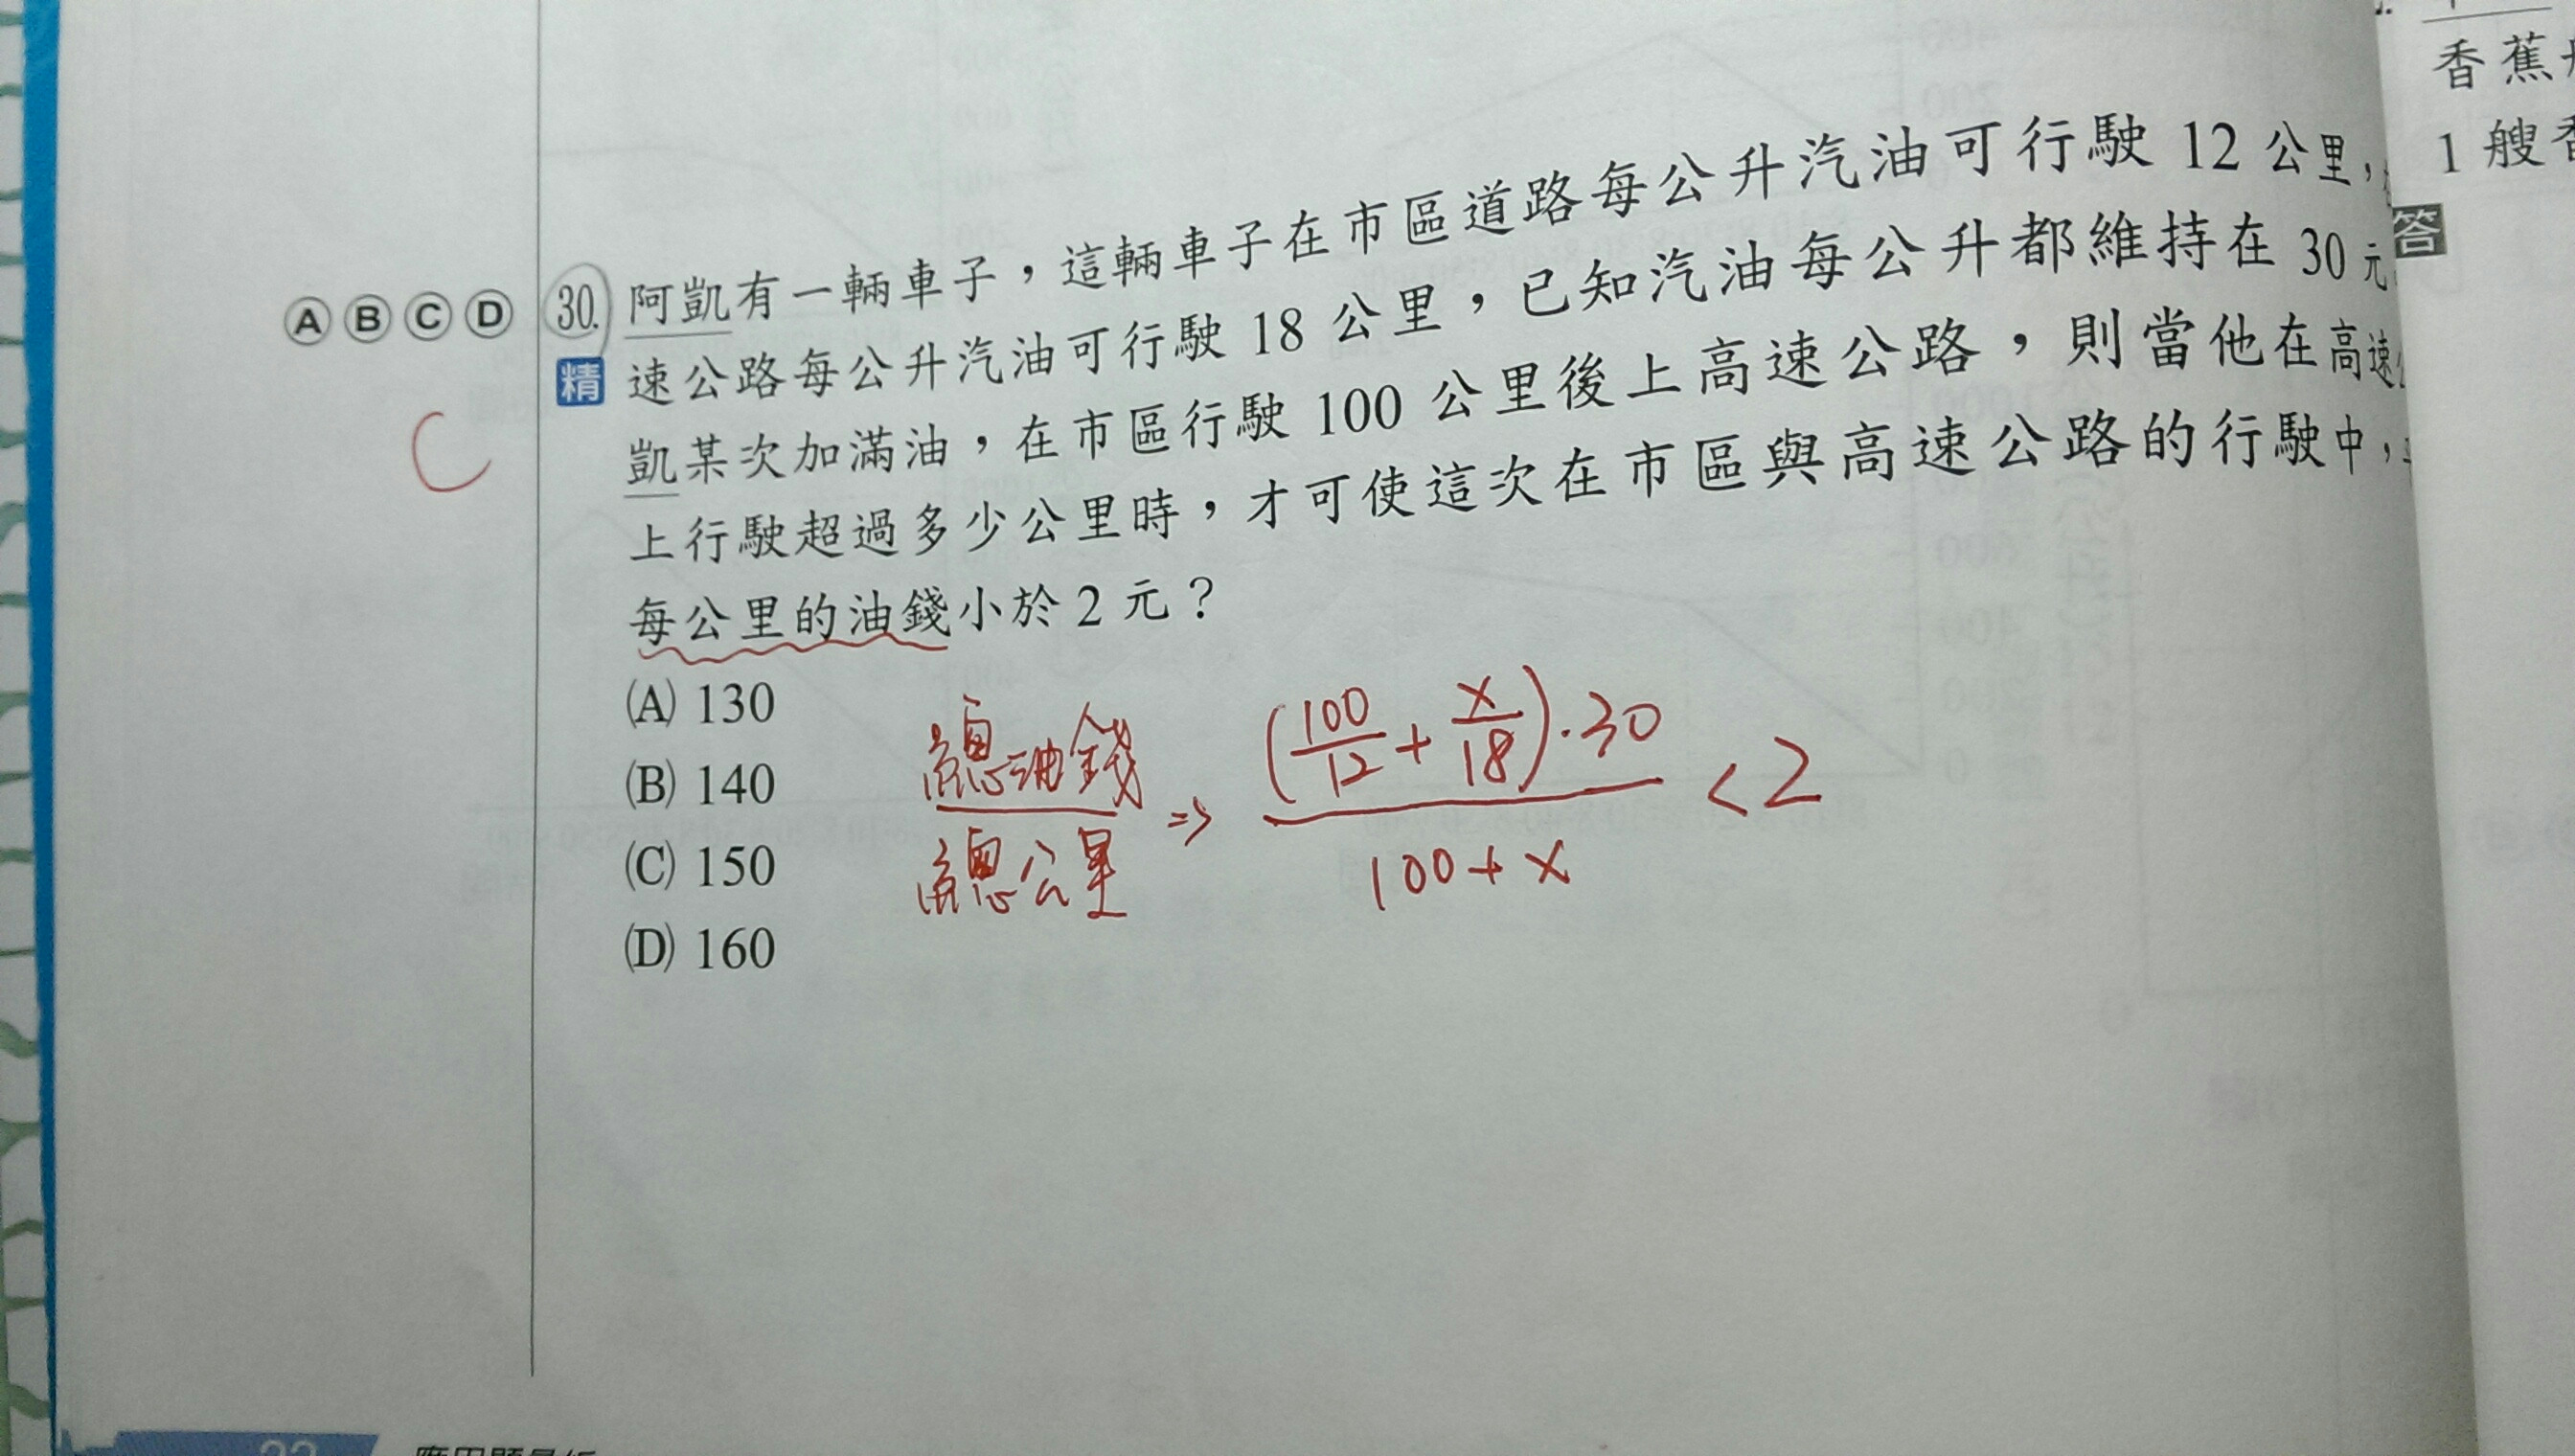 ⒶⒷⒸⒹ 30. 阿凱有一輛車子，這輛車子在市區道路每公升汽油可行駛 12 公里，
精 速公路每公升汽油可行駛 18 公里，已知汽油每公升都維持在 30 元
凱某次加滿油，在市區行駛 100 公里後上高速公路，則當他在高速
上行駛超過多少公里時，才可使這次在市區與高速公路的行駛中，
每公里的油錢小於 2 元？
C
(A) 130
(B) 140
(C) 150
(D) 160
總油錢/總公里 ⇒ (100/12 + x/18)·30 / 100+x < 2
香蕉
1 艘香
答